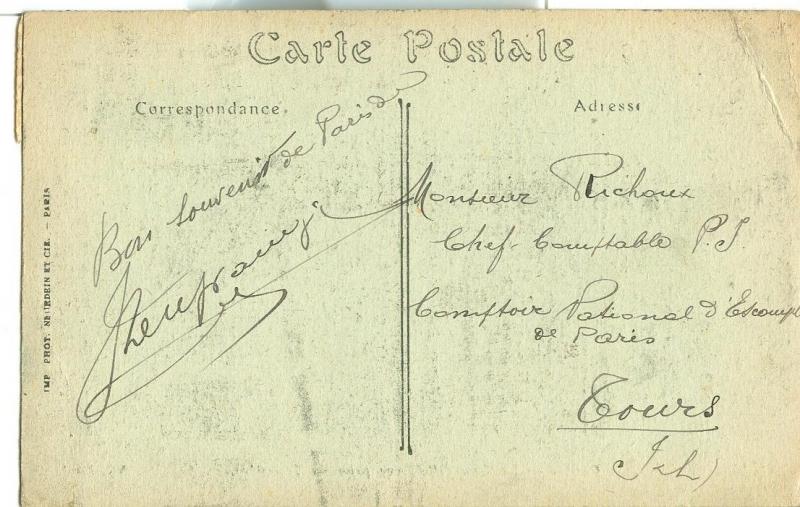 Carte Postale
Correspondance
Adresse
Bon Souvenir de Paris de
Monsieur Richoux
Chef Comptable P.I
Comptoir National d'Escompte
de Paris
Tours
(I&L)
IMP. PHOT. NEURDEIN ET CIE. — PARIS